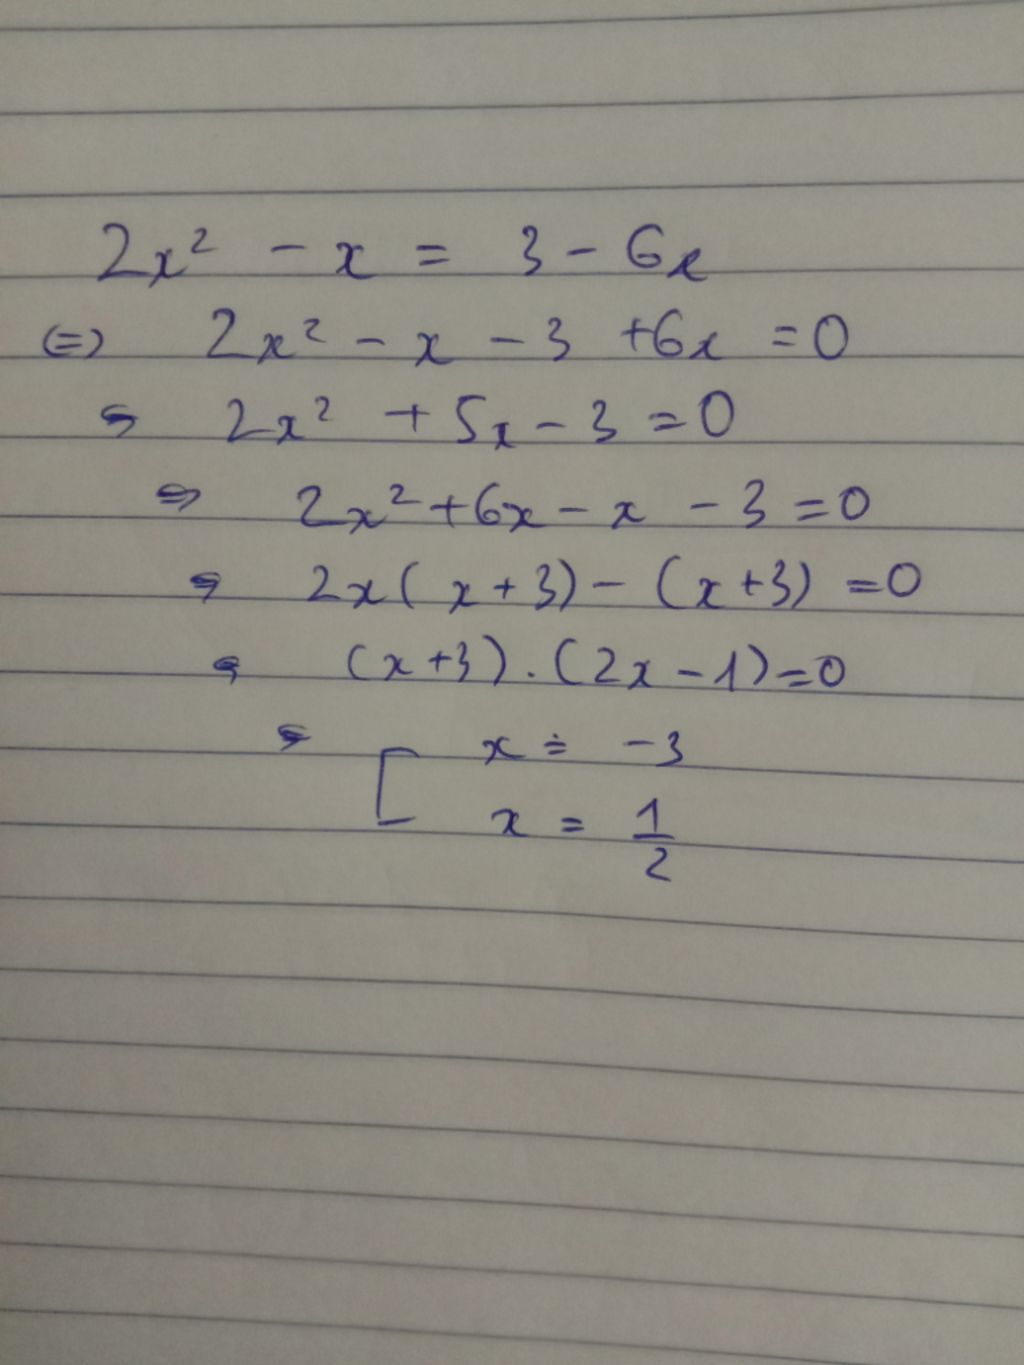 2x² - x = 3 - 6x
⇔ 2x² - x - 3 + 6x = 0
⇔ 2x² + 5x - 3 = 0
⇔ 2x² + 6x - x - 3 = 0
⇔ 2x( x + 3) - (x + 3) = 0
⇔ (x + 3) . (2x - 1) = 0
⇔ [ x = -3
x = 1/2